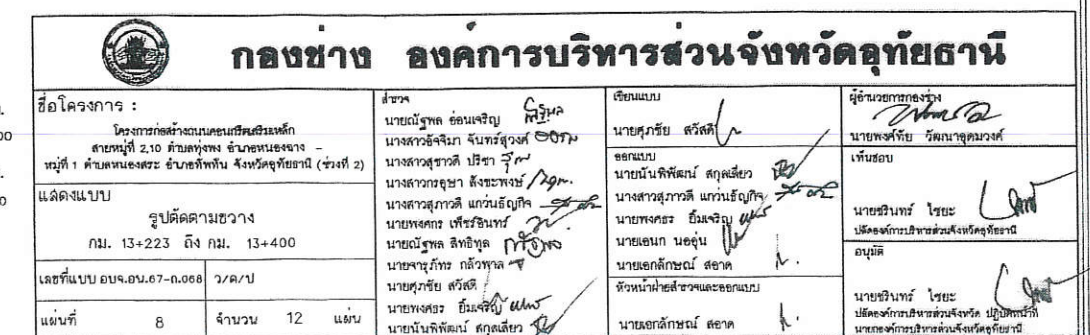 กองช่าง องค์การบริหารส่วนจังหวัดอุทัยธานี
ชื่อโครงการ :
โครงการก่อสร้างถนนคอนกรีตเสริมเหล็ก
สายหมู่ที่ 2,10 ตำบลทุ่งพง อำเภอหนองฉาง –
หมู่ที่ 1 ตำบลหนองสระ อำเภอทัพทัน จังหวัดอุทัยธานี (ช่วงที่ 2)
แสดงแบบ
รูปตัดตามขวาง
กม. 13+223 ถึง กม. 13+400
เลขที่แบบ อบจ.อน.67-ถ.068
ว/ด/ป
แผ่นที่ 8
จำนวน 12 แผ่น
สำรวจ
นายณัฐพล อ่อนเจริญ
นางสาวอัจจิมา จันทร์สุวงศ์
นางสาวสุชาวดี ปรีชา
นางสาวกรอุษา สังขะพงษ์
นางสาวสุภาวดี แก่นธัญกิจ
นายพงศกร เพ็ชร์อินทร์
นายณัฐพล สิทธิทูล
นายจารุภัทร กลัวพาล
นายศุภชัย สวัสดี
นายพงศธร ยิ้มเจริญ
นายนันพิพัฒน์ สกุลเดียว
เขียนแบบ
นายศุภชัย สวัสดี
ออกแบบ
นายนันพิพัฒน์ สกุลเดียว
นางสาวสุภาวดี แก่นธัญกิจ
นายพงศธร ยิ้มเจริญ
นายเอนก นออุ่น
นายเอกลักษณ์ สอาด
หัวหน้าฝ่ายสำรวจและออกแบบ
นายเอกลักษณ์ สอาด
ผู้อำนวยการกองช่าง
นายพงศ์ทัย วัฒนาอุดมวงศ์
เห็นชอบ
นายชรินทร์ ไชยะ
ปลัดองค์การบริหารส่วนจังหวัดอุทัยธานี
อนุมัติ
นายชรินทร์ ไชยะ
ปลัดองค์การบริหารส่วนจังหวัด ปฏิบัติหน้าที่
นายกองค์การบริหารส่วนจังหวัดอุทัยธานี